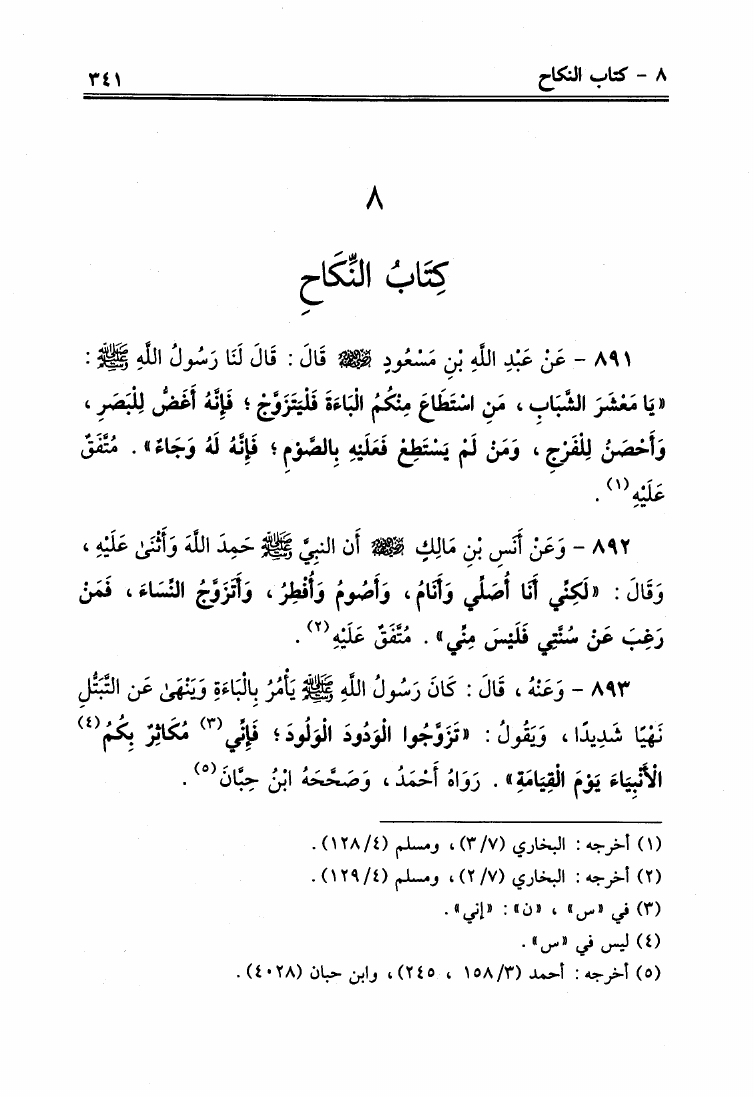 ٨ - كتاب النكاح
٣٤١
٨
كِتَابُ النِّكَاحِ
٨٩١ - عَنْ عَبْدِ اللَّهِ بْنِ مَسْعُودٍ ﵁ قَالَ : قَالَ لَنَا رَسُولُ اللَّهِ ﷺ :
«يَا مَعْشَرَ الشَّبَابِ ، مَنِ اسْتَطَاعَ مِنْكُمُ الْبَاءَةَ فَلْيَتَزَوَّجْ ؛ فَإِنَّهُ أَغَضُّ لِلْبَصَرِ ،
وَأَحْصَنُ لِلْفَرْجِ ، وَمَنْ لَمْ يَسْتَطِعْ فَعَلَيْهِ بِالصَّوْمِ ؛ فَإِنَّهُ لَهُ وَجَاءٌ» . مُتَّفَقٌ
عَلَيْهِ (١) .
٨٩٢ - وَعَنْ أَنَسِ بْنِ مَالِكٍ ﵁ أَن النبيَّ ﷺ حَمِدَ اللَّهَ وَأَثْنَى عَلَيْهِ ،
وَقَالَ : «لَكِنِّي أَنَا أُصَلِّي وَأَنَامُ ، وَأَصُومُ وَأُفْطِرُ ، وَأَتَزَوَّجُ النِّسَاءَ ، فَمَنْ
رَغِبَ عَنْ سُنَّتِي فَلَيْسَ مِنِّي» . مُتَّفَقٌ عَلَيْهِ (٢) .
٨٩٣ - وَعَنْهُ ، قَالَ : كَانَ رَسُولُ اللَّهِ ﷺ يَأْمُرُ بِالْبَاءَةِ وَيَنْهَى عَنِ التَّبَتُّلِ
نَهْيًا شَدِيدًا ، وَيَقُولُ : «تَزَوَّجُوا الْوَدُودَ الْوَلُودَ ؛ فَإِنِّي (٣) مُكَاثِرٌ بِكُمُ (٤)
الْأَنْبِيَاءَ يَوْمَ الْقِيَامَةِ» . رَوَاهُ أَحْمَدُ ، وَصَحَّحَهُ ابْنُ حِبَّانَ (٥) .
(١) أخرجه : البخاري (٣/٧) ، ومسلم (١٢٨/٤) .
(٢) أخرجه : البخاري (٢/٧) ، ومسلم (١٢٩/٤) .
(٣) في «س» ، «ن» : «إني» .
(٤) ليس في «س» .
(٥) أخرجه : أحمد (١٥٨/٣ ، ٢٤٥) ، وابن حبان (٤٠٢٨) .